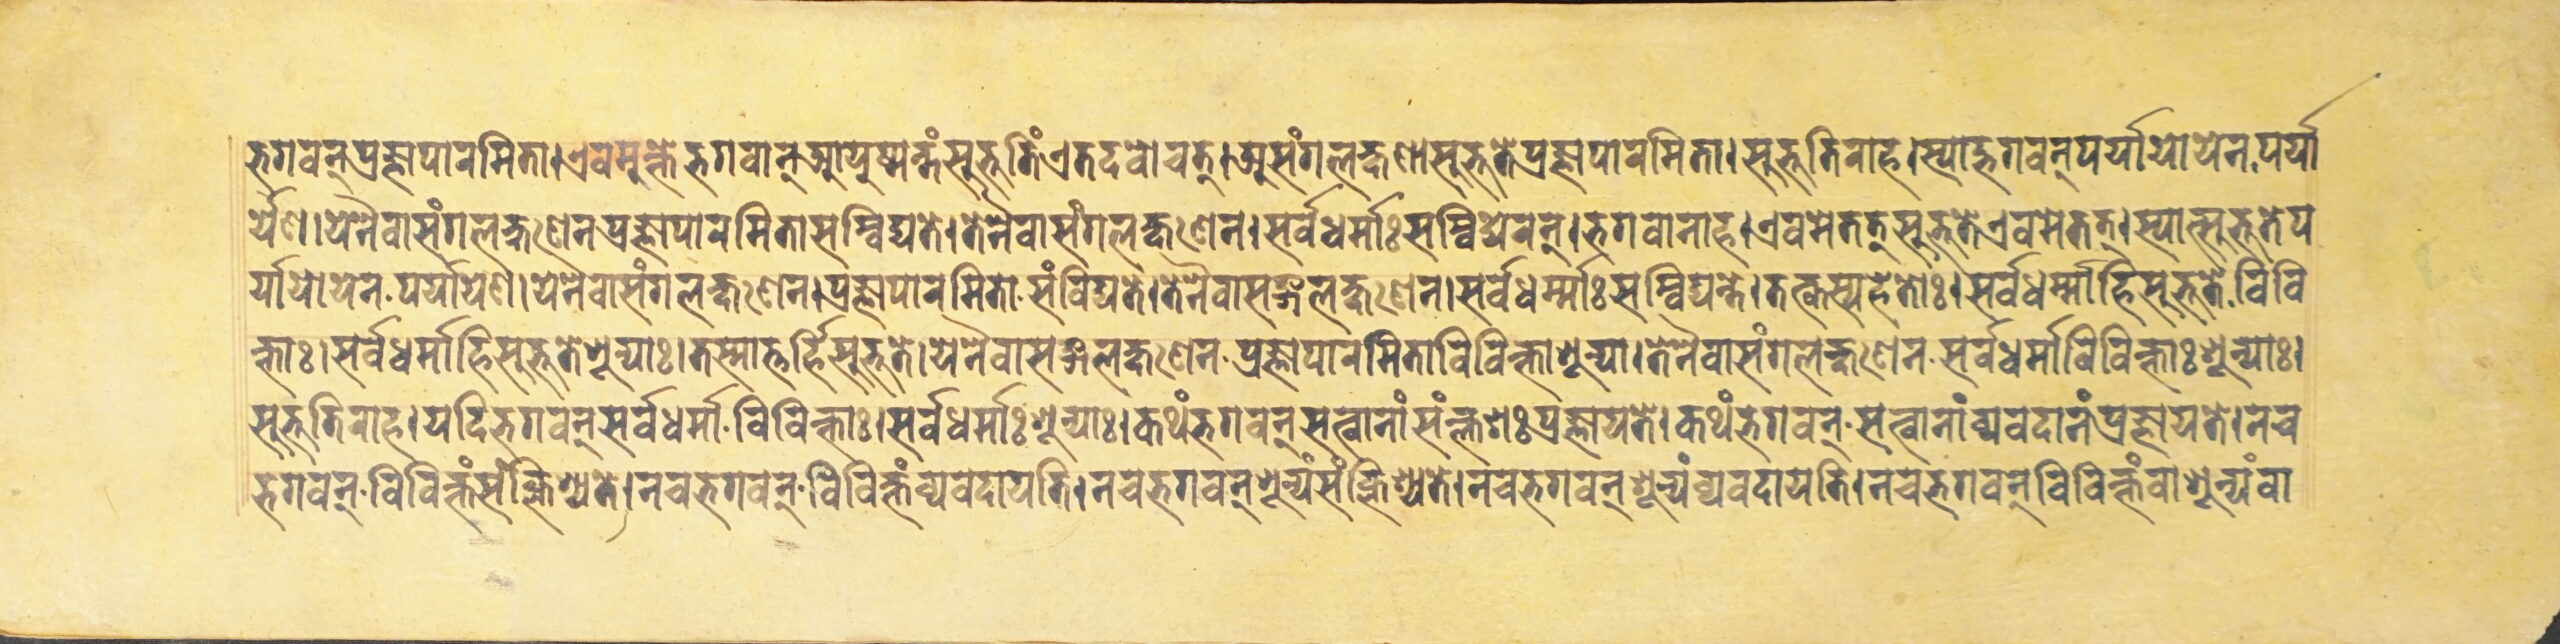 भगवन्प्रज्ञापारमिता।एवमुक्तेभगवान्आयुष्मन्तंसुभूतिंएतदवोचत्।असंगलक्षणासुभूतेप्रज्ञापारमिता।सुभूतिराह।स्याद्भगवन्पर्यायोयेन.पर्या
र्येण।येनैवासंगलक्षणेनप्रज्ञापारमितासम्विद्यते।तेनैवासंगलक्षणेन।सर्वधर्माःसम्विद्येरन्।भगवानाह।एवमेतत्सुभूतेएवमेतत्।स्यात्सुभूतेप
र्यायोयेन.पर्यायेण।येनैवासंगलक्षणेन।प्रज्ञापारमिता.संविद्यते।तेनैवासङ्गलक्षणेन।सर्वधर्म्माःसम्विद्यन्ते।तत्कस्यहेतोः।सर्वधर्म्माहिसुभूते.विवि
क्ताः।सर्वधर्माहिसुभूतेशून्याः।तस्मात्तर्हिसुभूते।येनैवासङ्गलक्षणेन.प्रज्ञापारमिताविविक्ताशून्या।तेनैवासंगलक्षणेन.सर्वधर्माविविक्ताःशून्याः।
सुभूतिराह।यदिभगवन्सर्वधर्मा.विविक्ताः।सर्वधर्माःशून्याः।कथंभगवन्सत्वानांसंक्लेशःप्रज्ञायते।कथंभगवन्.सत्वानांव्यवदानंप्रज्ञायते।नच
भगवन्.विविक्तंसंक्लिश्यते।नचभगवन्.विविक्तंव्यवदायति।नचभगवन्शून्यंसंक्लिश्यते।नचभगवन्शून्यंव्यवदायति।नचभगवन्विविक्तंवाशून्यंवा